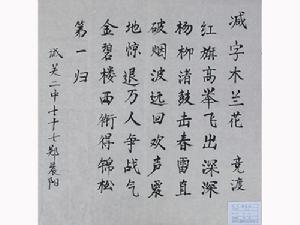 减字木兰花 竞渡
红旗高举飞出深深
杨柳渚鼓击春雷直
破烟波远回欢声震
地惊退万人争战气
金碧楼西衔得锦标
第一归